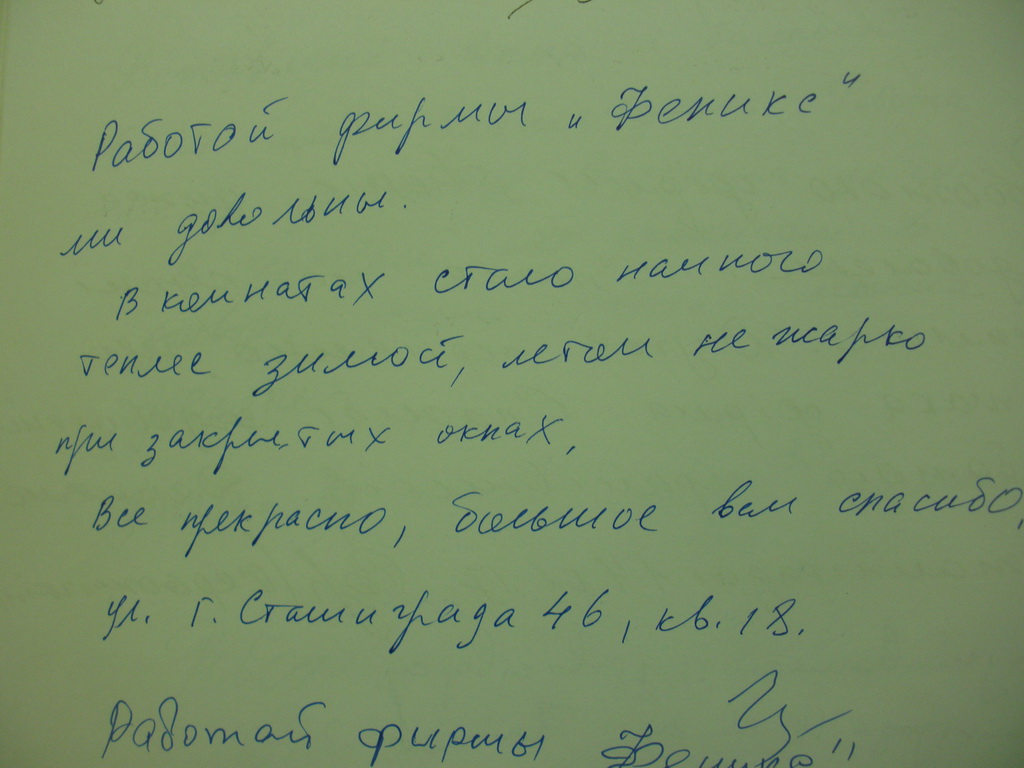 Работой фирмы „Феникс"
мы довольны.
В комнатах стало намного
теплее зимой, летом не жарко
при закрытых окнах,
Все прекрасно, большое вам спасибо,
ул. Г. Сталинграда 46, кв. 18.
Работой фирмы „Феникс"